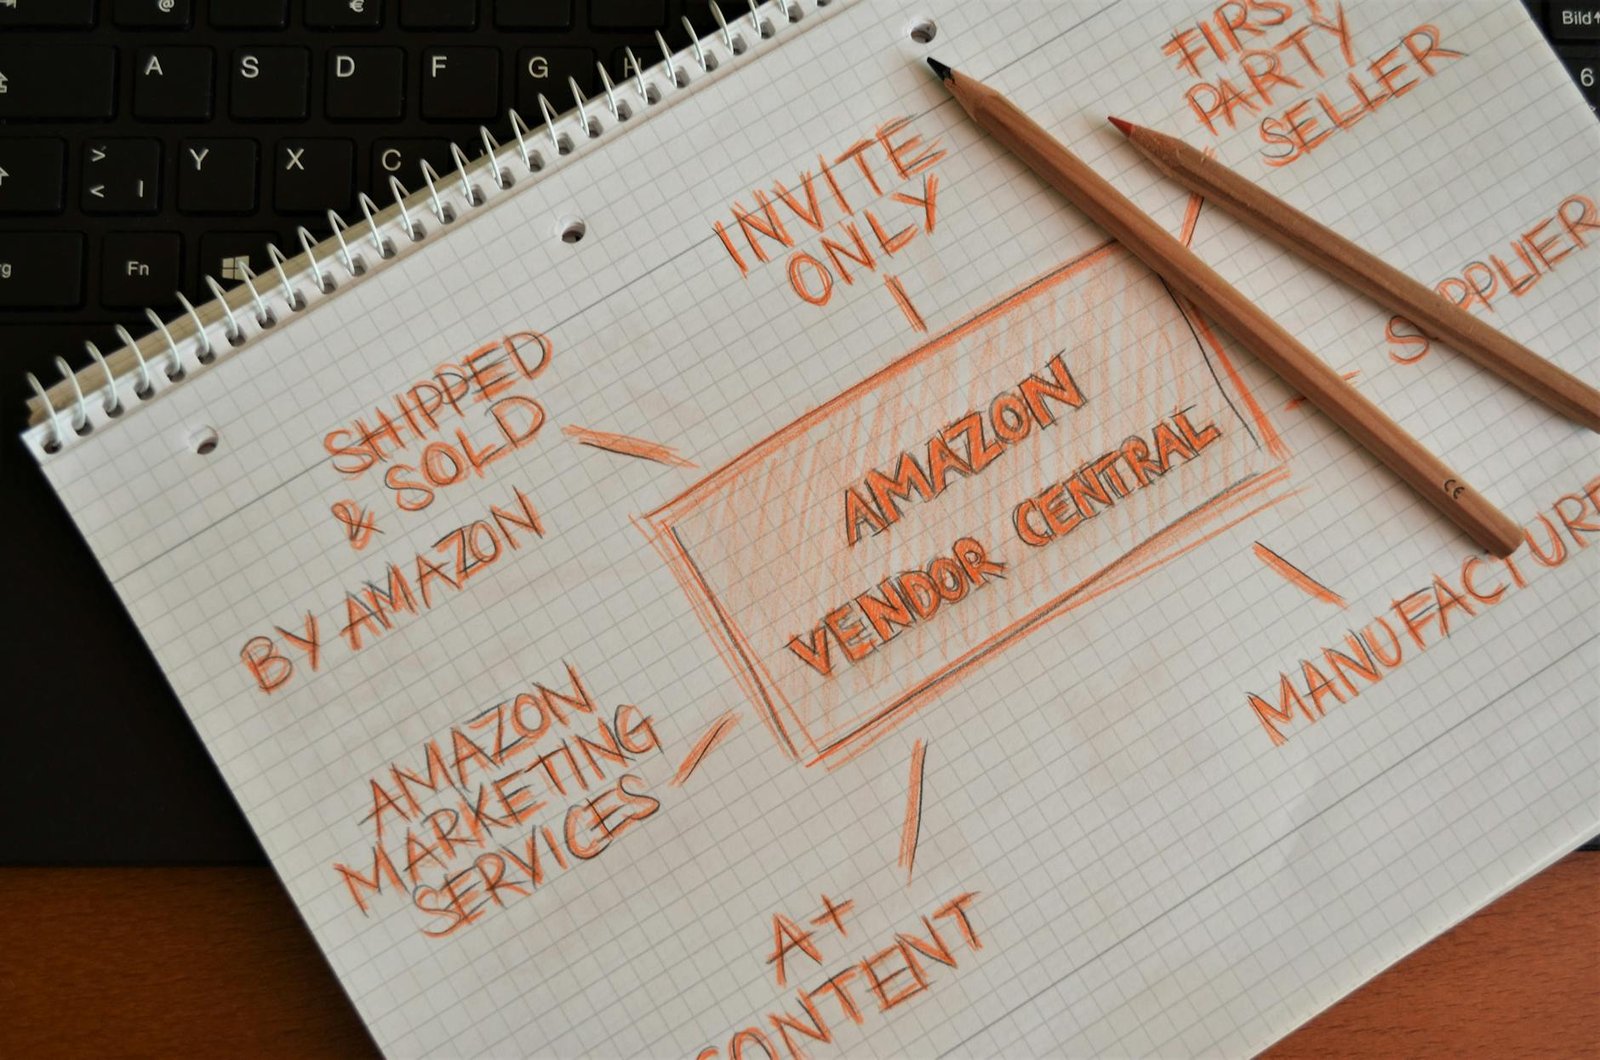 @
€
Bild
A S D F G H
6
> < |
Y X C
Fn
FIRST
PARTY
SELLER
INVITE
ONLY
SUPPLIER
SHIPPED
& SOLD
BY AMAZON
AMAZON
VENDOR CENTRAL
MANUFACTURE
AMAZON
MARKETING
SERVICES
A+
CONTENT
CE